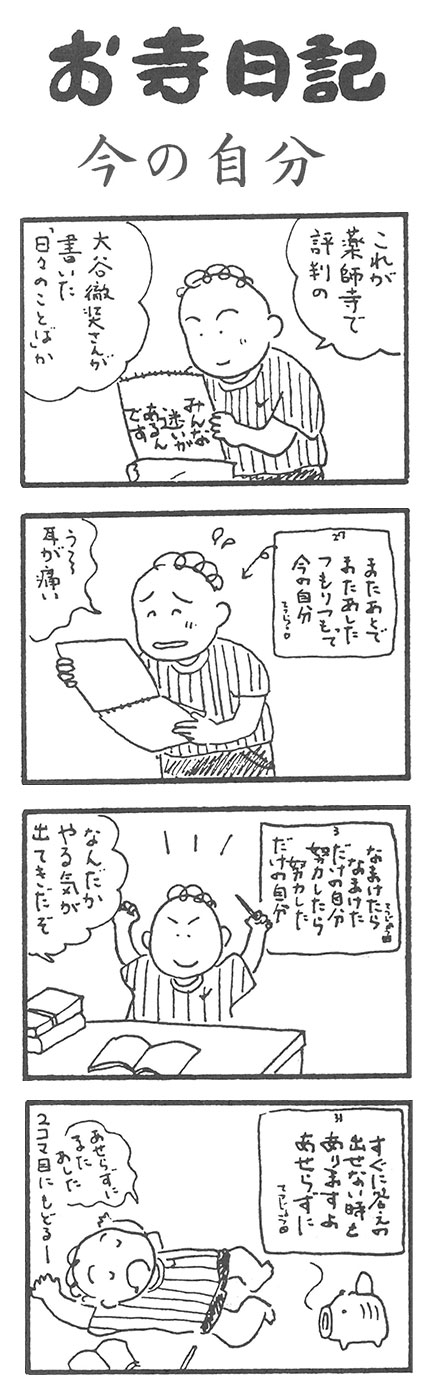 お寺日記
今の自分
これが
薬師寺で
評判の
大谷徹奘さんが
書いた
「日々のことば」か
みんな
迷いが
あるん
です
27
またあとで
またあした
つもりつもって
今の自分
う〜〜
耳が痛い
3
なまけたら
なまけた
だけの自分
努力したら
努力した
だけの自分
なんだか
やる気が
出てきたぞ
31
すぐに答えの
出せない時も
ありますよ
あせらずに
あせらずに
また
あした
2コマ目にもどるー